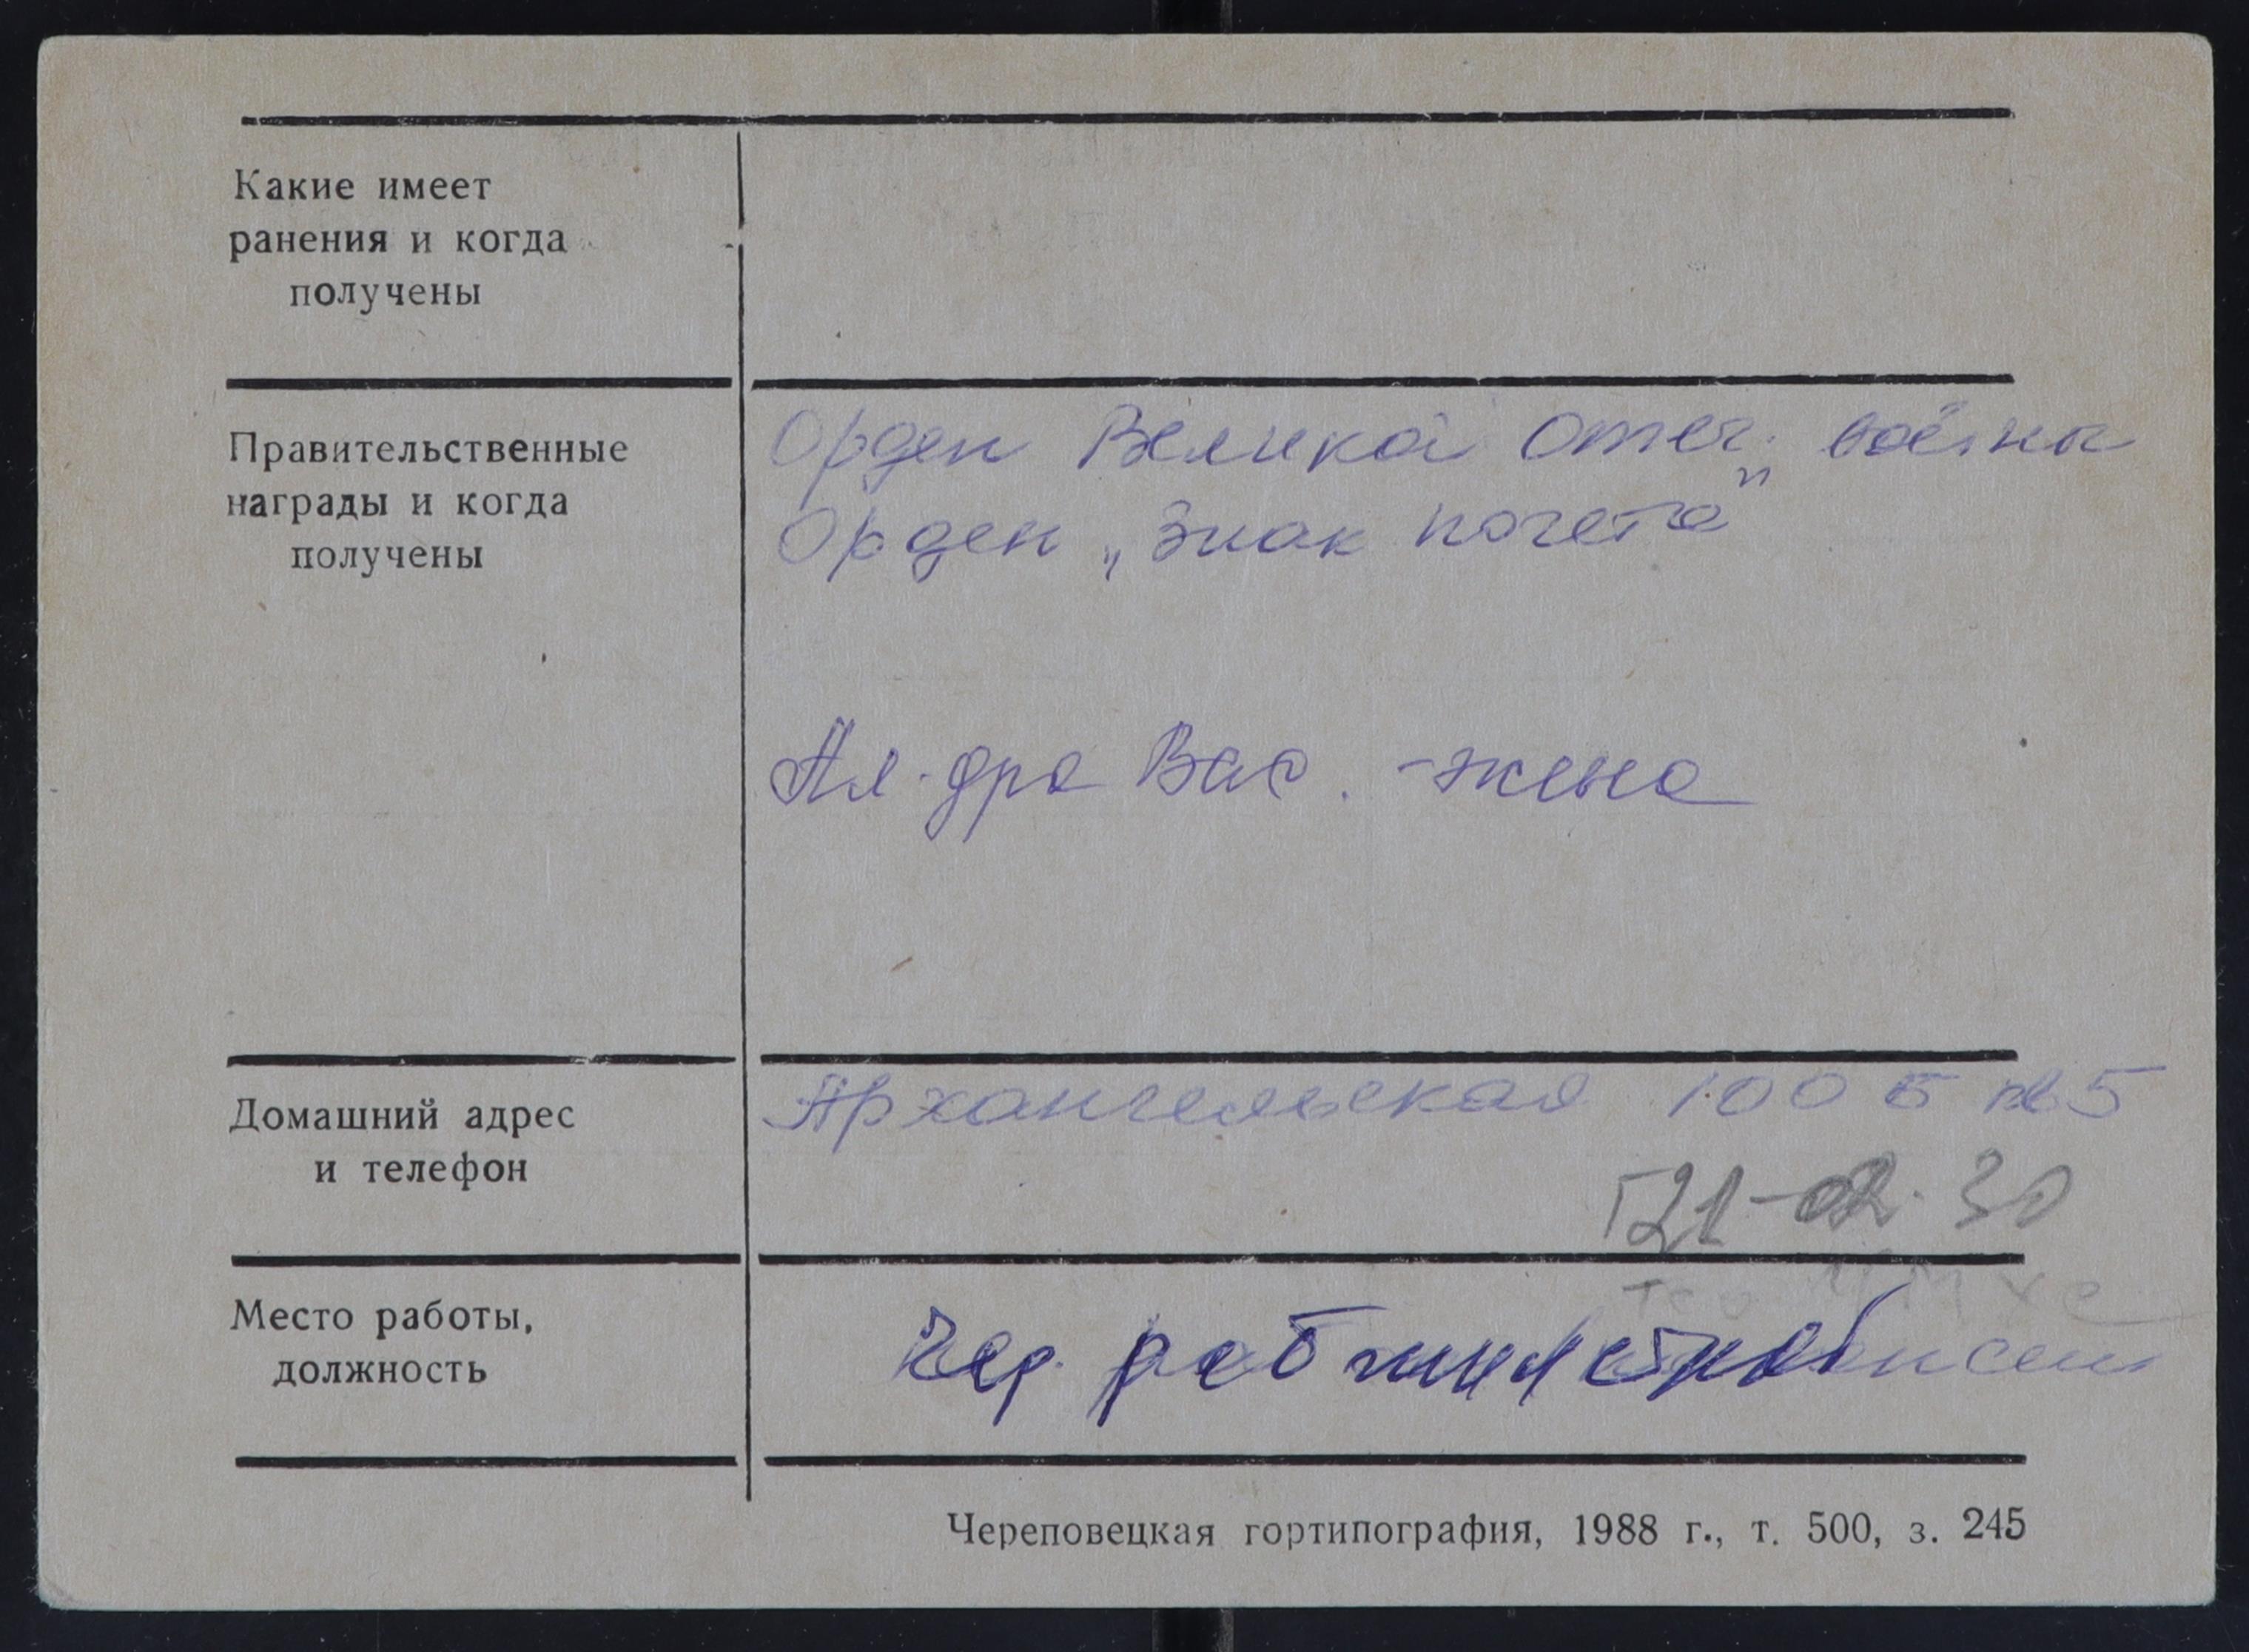 Какие имеет
ранения и когда
получены
Правительственные
награды и когда
получены
Орден Великой Отеч. войны
Орден „Знак почета"
Ал-дра Вас. - жена
Домашний адрес
и телефон
Архангельская 100 Б кв 5
Т21-02-30
Место работы,
должность
Чер раб
Череповецкая гортипография, 1988 г., т. 500, з. 245